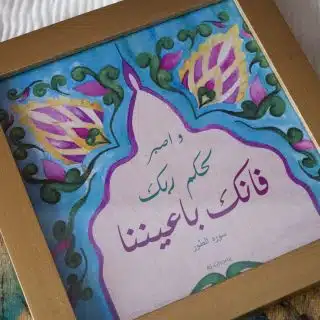 و اصبر
لحکم ربک
فانک باعیننا
سوره الطور